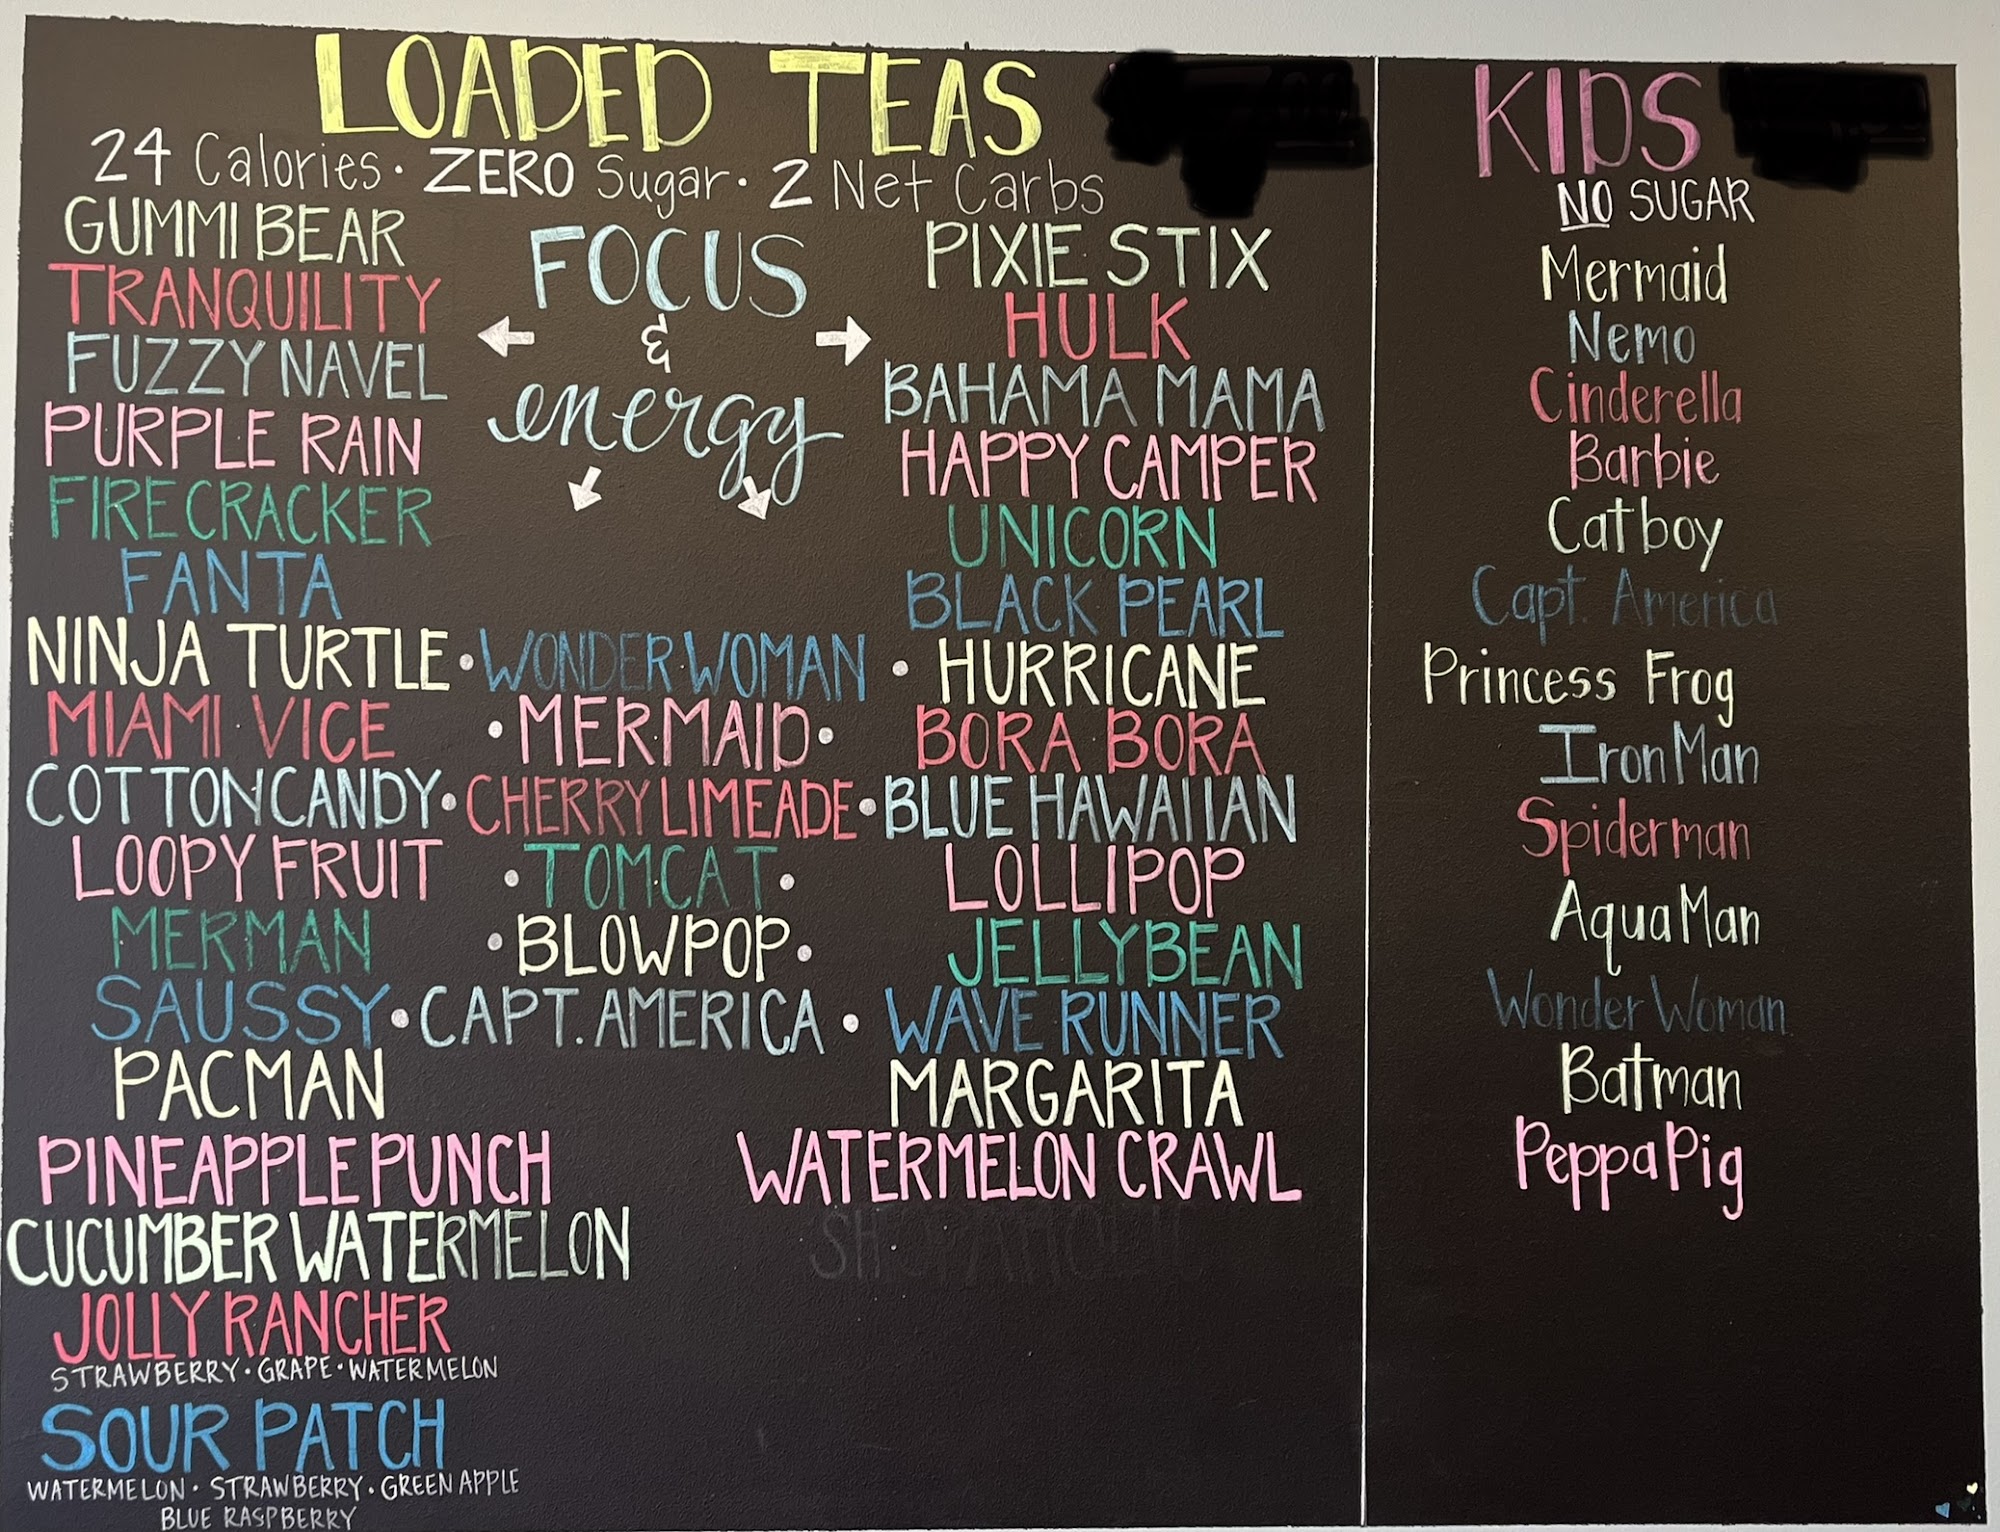 LOADED TEAS
24 Calories · ZERO Sugar · 2 Net Carbs
FOCUS
&
energy
GUMMI BEAR
TRANQUILITY
FUZZY NAVEL
PURPLE RAIN
FIRECRACKER
FANTA
NINJA TURTLE
MIAMI VICE
COTTON CANDY
LOOPY FRUIT
MERMAN
SAUSSY
PACMAN
PINEAPPLE PUNCH
CUCUMBER WATERMELON
JOLLY RANCHER
STRAWBERRY · GRAPE · WATERMELON
SOUR PATCH
WATERMELON · STRAWBERRY · GREEN APPLE
BLUE RASPBERRY
· WONDER WOMAN ·
· MERMAID ·
· CHERRY LIMEADE ·
· TOMCAT ·
· BLOWPOP ·
· CAPT. AMERICA ·
PIXIE STIX
HULK
BAHAMA MAMA
HAPPY CAMPER
UNICORN
BLACK PEARL
HURRICANE
BORA BORA
BLUE HAWAIIAN
LOLLIPOP
JELLYBEAN
WAVE RUNNER
MARGARITA
WATERMELON CRAWL
KIDS
NO SUGAR
Mermaid
Nemo
Cinderella
Barbie
Catboy
Capt. America
Princess Frog
Iron Man
Spiderman
AquaMan
Wonder Woman
Batman
Peppa Pig